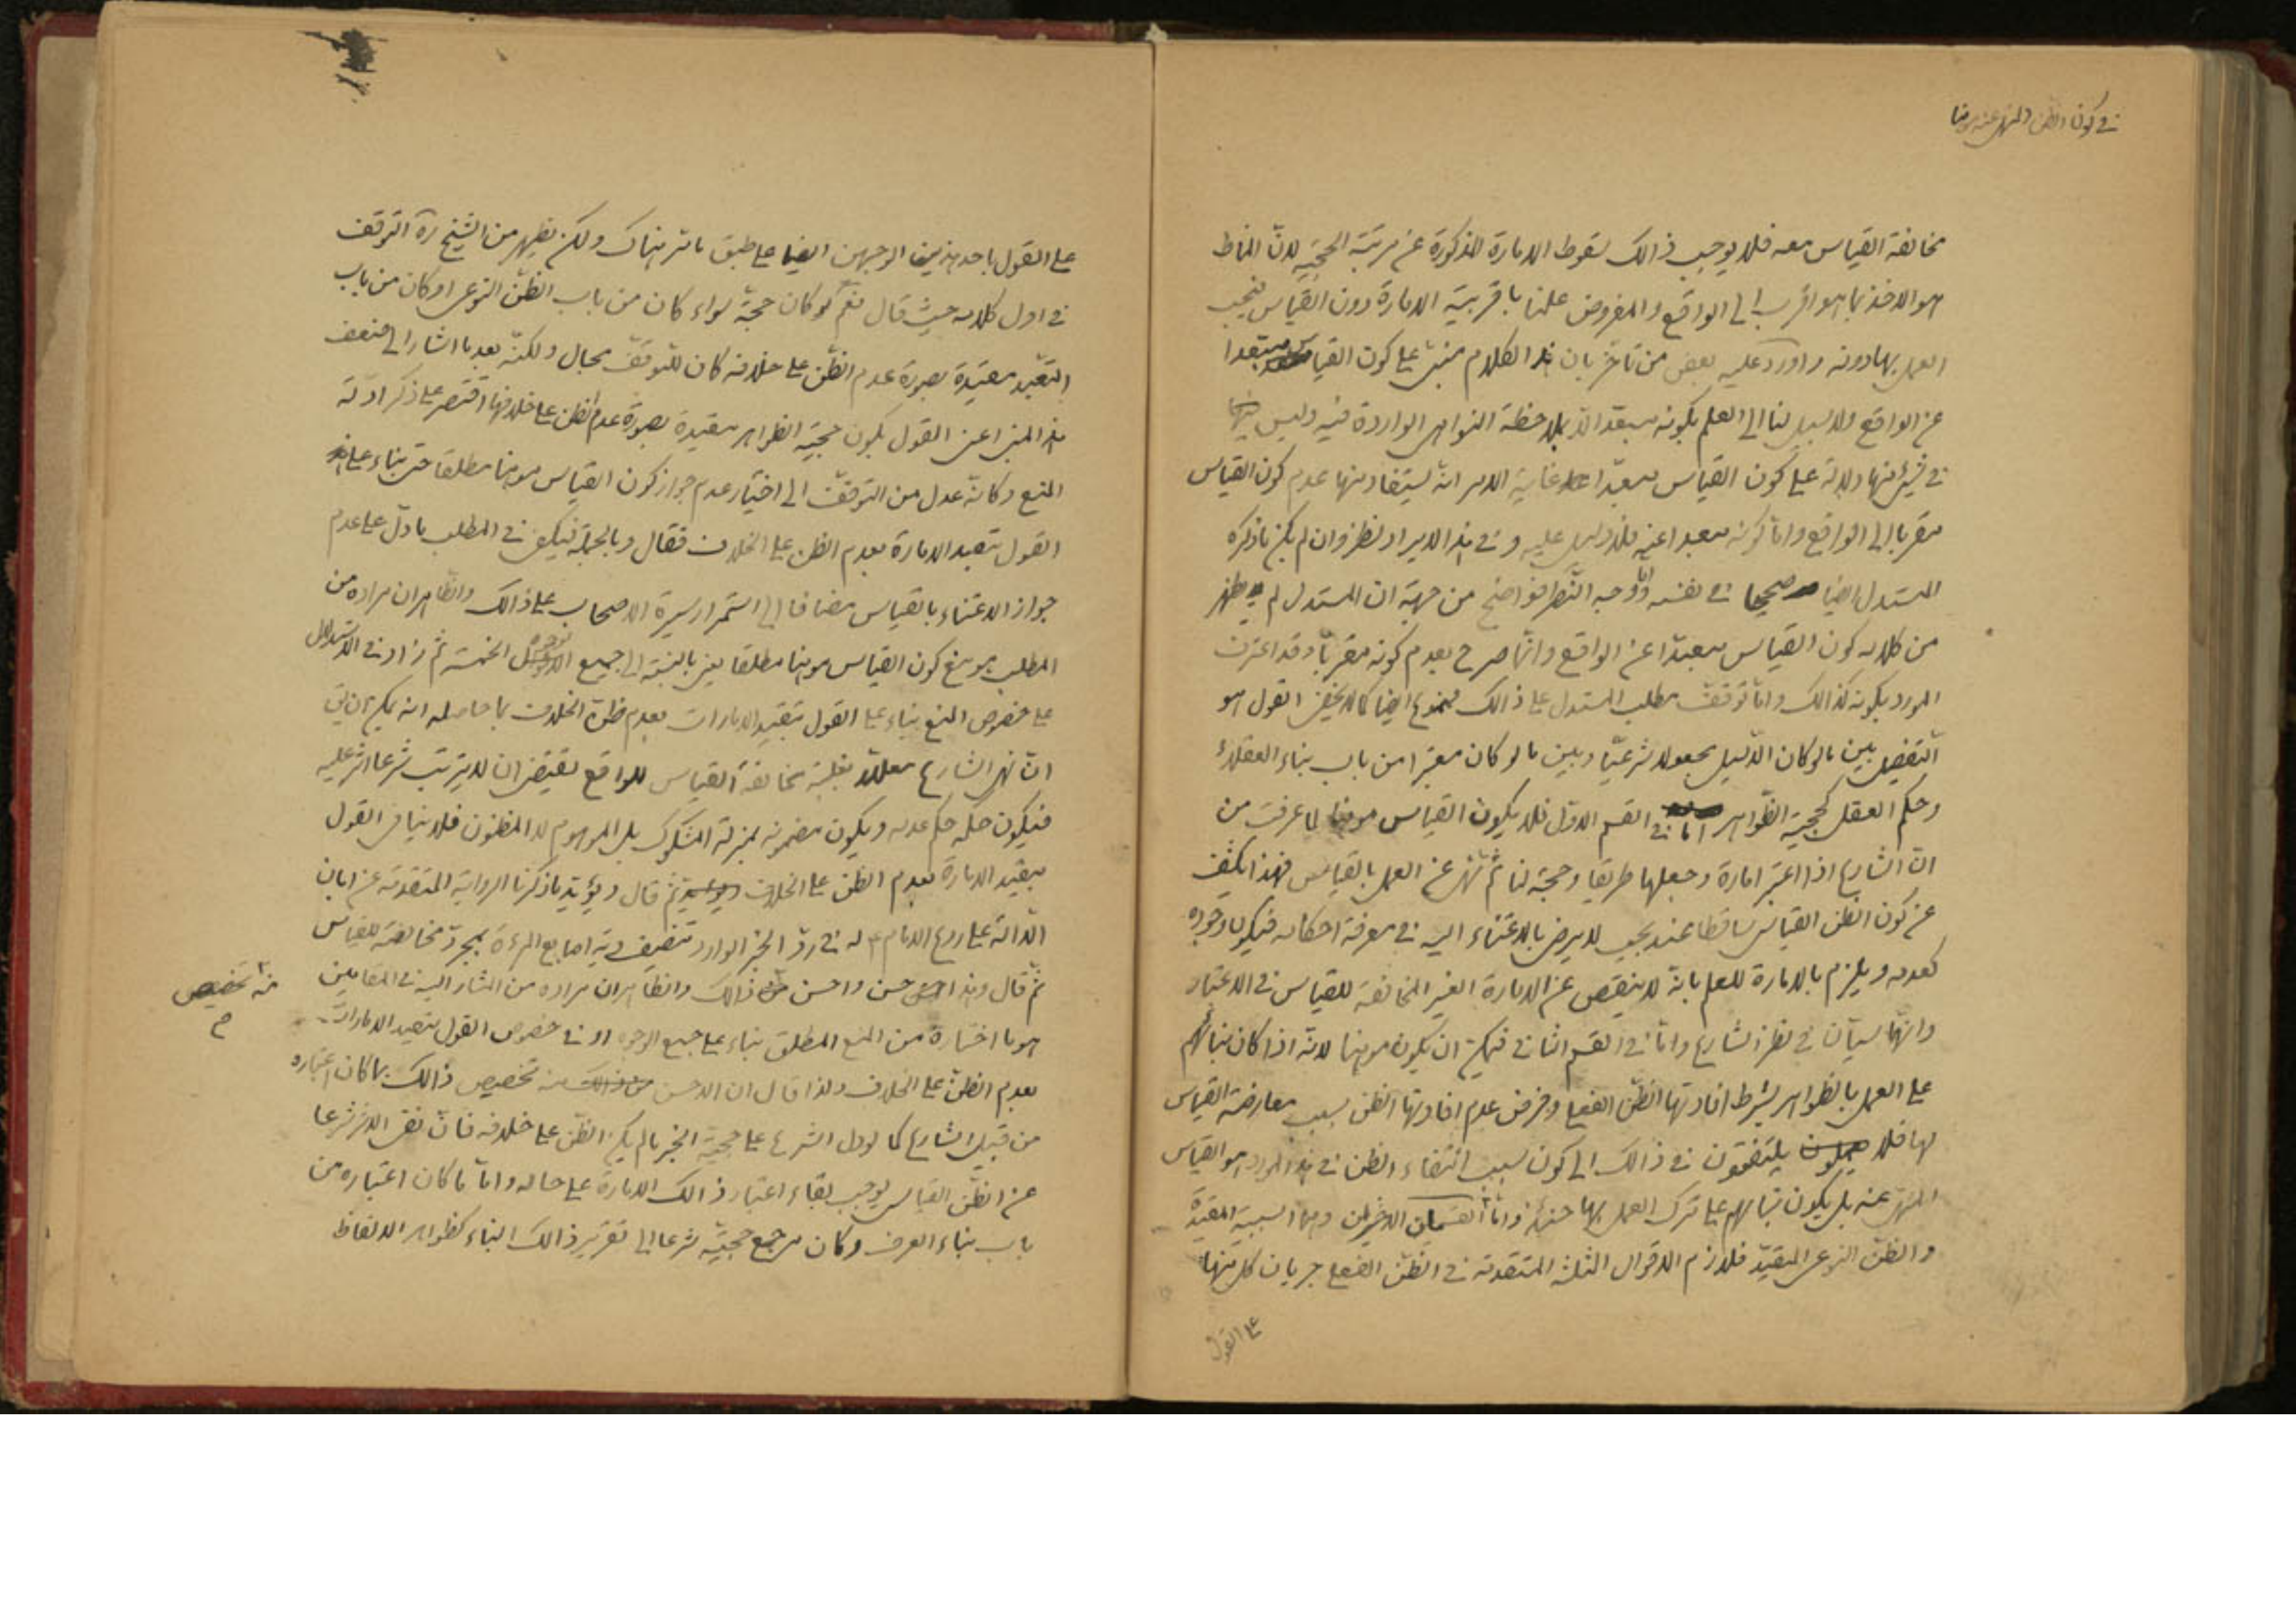 في كون الظن المنهي عنه موهنا
مخالفة القياس معه فلا يوجب ذالك سقوط الامارة المذكورة عن مرتبة الحجية لانّ المناط
هو الاخذ بما هو اقرب الى الواقع والمفروض علمنا باقربية الامارة دون القياس فيجب
العمل بها دونه واورد عليه بعض من تأخر بان هذا الكلام مبنى على كون القياس مبعدا
عن الواقع ولا سبيل لنا الى العلم بكونه مبعدا الا بملاحظة النواهى الواردة فيه وليس
في شئ منها دلالة على كون القياس مبعدا غاية الامر انه يستفاد منها عدم كون القياس
مقربا الى الواقع وامّا كونه مبعدا عنه فلا دليل عليه وفي هذا الايراد نظر وان لم يكن ما ذكره
المستدل ايضا صحيحا في نفسه امّا وجه النّظر فواضح من جهة ان المستدل لم يظهر
من كلامه كون القياس مبعدا عن الواقع وانّما صرح بعدم كونه مقربا وقد اعترف
المورد بكونه كذالك وامّا توقف مطلب المستدل على ذالك فممنوع ايضا كما لا يخفى القول هو
التفصيل بين ما لو كان الدّليل مجعولا شرعيّا وبين ما لو كان معتبرا من باب بناء العقلاء
وحكم العقل كحجية الظّواهر امّا في القسم الاوّل فلا يكون القياس موهنا لما عرفت من
انّ الشارع اذا اعتبر امارة وجعلها طريقا وحجة لنا ثم نهى عن العمل بالقياس فهذا يكشف
عن كون الظن القياسى ساقطا عنده بحيث لا يرضى بالاعتناء اليه في معرفة احكامه فيكون وجوده
كعدمه ويلزم بالامارة للعلم بانّه لا ينقص عن الامارة الغير المخالفة للقياس في الاعتبار
وانّهما سيّان في نظر الشارع وامّا في القسم الثانى فيمكن ان يكون موهنا لانه اذا كان بنائهم
على العمل بالظواهر بشرط افادتها الظنّ الفعلى وفرض عدم افادتها الظن بسبب معارضة القياس
لها فلا يلتفتون في ذالك الى كون سبب انتفاء الظن في هذا المورد هو القياس
المنهى عنه بل يكون بنائهم على ترك العمل بها حينئذ وامّا القسمان الاخيران وهما السببية المقيدة
والظنّ النوعى المقيد فلازم الاقوال الثلثة المتقدمة في الظنّ الفعلى جريان كل منها
على القول
على القول باحد هذين الوجهين ايضا على طبق ما مر هناك ولكن يظهر من الشيخ ره التوقف
في اول كلامه حيث قال نعم لو كان حجة سواء كان من باب الظنّ النوعى او كان من باب
التعبّد مقيدة بصورة عدم الظّن على خلافه كان للتوقّف مجال ولكنّه بعد ما اشار الى ضعف
هذا المبنى اعنى القول بكون حجية الظواهر مقيدة بصورة عدم الظن على خلافها اقتصر على ذكر ادلّة
المنع وكانّه عدل من التوقّف الى اختيار عدم جواز كون القياس موهنا مطلقا حتى بناء على
القول بتقييد الامارة بعدم الظن على الخلاف فقال وبالجملة فيكفى في المطلب ما دلّ على عدم
جواز الاعتناء بالقياس مضافا الى استمرار سيرة الاصحاب على ذالك والظاهر ان مراده من
المطلب هو منع كون القياس موهنا مطلقا يعنى بالنسبة الى جميع الوجوه الخمسة ثم زاد في الاستدلال
على خصوص المنع بناء على القول بتقييد الامارات بعدم ظنّ الخلاف بما حاصله انه يمكن ان يق
انّ نهى الشارع معللا بغلبة مخالفة القياس للواقع يقتضى ان لا يترتب شرعا اثر عليه
فيكون حكمه حكم عدمه ويكون مضمونه بمنزلة المشكوك بل الموهوم لا المظنون فلا ينافى القول
بتقييد الامارة بعدم الظنّ على الخلاف ثم قال ويؤيد ما ذكرنا الرواية المتقدمة عن ابان
الدّالة على ردع الامام ع له في ردّ الخبر الوارد تنصيف دية اصابع المرءة بمجرد مخالفته للقياس
ثم قال وهذا حسن واحسن ذالك والظاهر ان مراده من المشار اليه في المقامين
منه تخصيص
م
هو ما اختاره من المنع المطلق بناء على جميع الوجوه او في خصوص القول بتقييد الامارات
بعدم الظنّ على الخلاف ولذا قال ان الاحسن منه تخصيص ذالك بما كان اعتباره
من قبيل الشارع كما لو دلّ الشرع على حجية الخبر ما لم يكن الظّن على خلافه فانّ نفى الاثر شرعا
عن الظّن القياسى يوجب بقاء اعتبار ذالك الامارة على حاله وامّا ما كان اعتباره من
باب بناء العرف وكان مرجع حجيّته شرعا الى تقرير ذالك البناء كظواهر الالفاظ